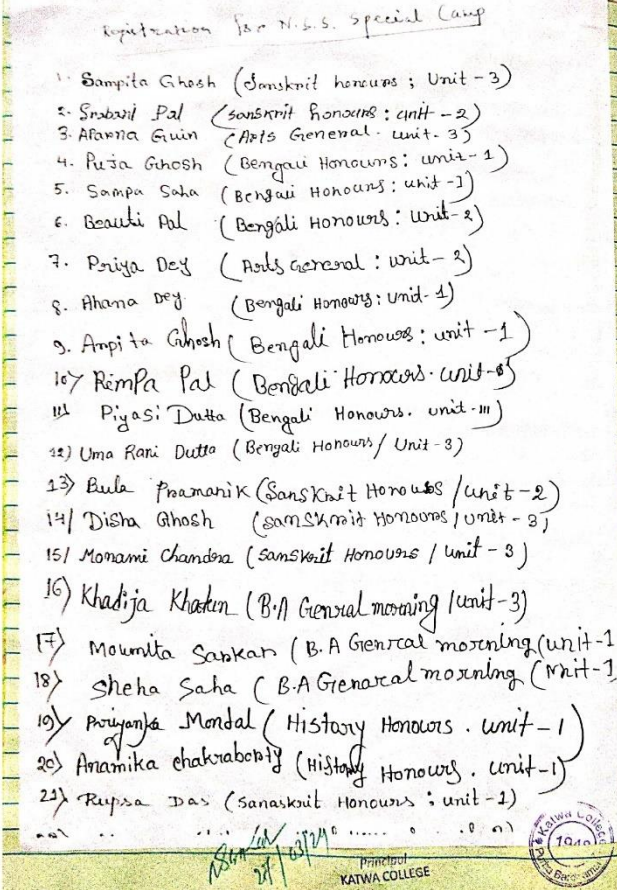 Registration for N.S.S. Special Camp
1. Sampita Ghosh (Sanskrit honours ; Unit - 3)
2. Srabani Pal (sanskrit honours : unit - 2)
3. Aparna Guin (Arts General. unit. 3)
4. Puja Ghosh (Bengali Honours: unit - 1)
5. Sampa Saha (Bengali Honours : unit - 1)
6. Beauti Pal (Bengali Honours : Unit - 2)
7. Priya Dey (Arts General : unit - 2)
8. Ahana Dey (Bengali Honours: Unid- 1)
9. Arpita Ghosh (Bengali Honours : unit - 1)
10) Rimpa Pal (Bengali Honours. unit-
11) Piyasi Dutta (Bengali Honours. unit - III)
12) Uma Rani Dutta (Bengali Honours / Unit - 3)
13) Bula Pramanik (Sanskrit Honours / unit - 2)
14/ Disha Ghosh (sanskrit Honours / unit - 3)
15/ Monami Chandra (sanskrit Honours / unit - 3)
16) Khadija Khatun (B.A Genral morning / unit - 3)
17) Moumita Sarkar (B.A Genral morning (unit - 1
18) Sneha Saha (B.A Genaral morning (Unit - 1
19) Priyanka Mondal (Histary Honours. unit - 1)
20) Anamika chakraborty (History Honours. unit - 1)
21) Rupsa Das (Sanaskrit Honours ; unit - 1)
27/03/24
Principal
KATWA COLLEGE
Katwa College